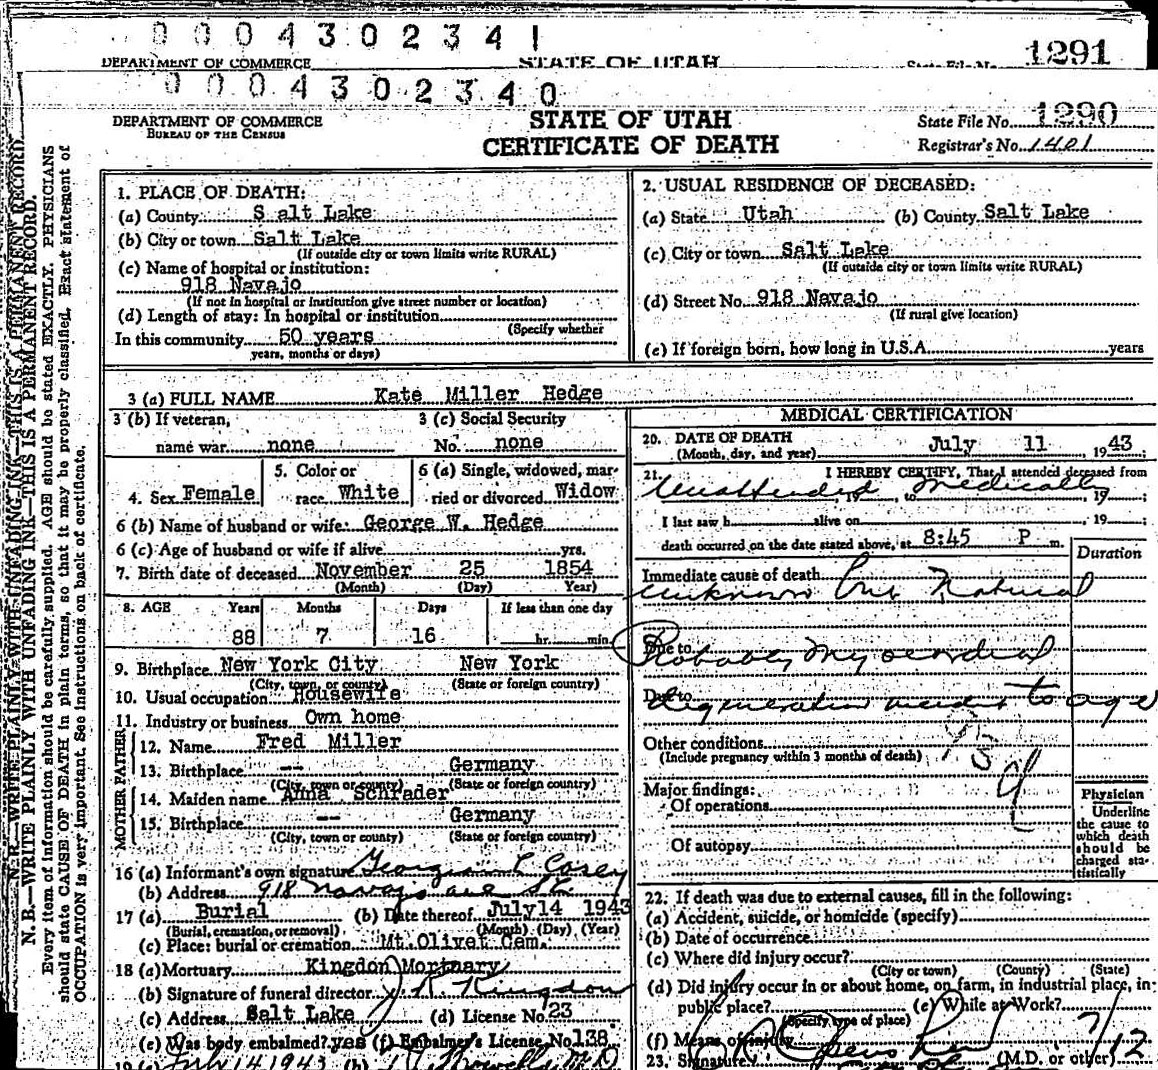 0004302341
DEPARTMENT OF COMMERCE STATE OF UTAH State File No. 1291
0004302340
DEPARTMENT OF COMMERCE
BUREAU OF THE CENSUS
STATE OF UTAH
CERTIFICATE OF DEATH
State File No. 1290
Registrar's No. 1401
N. B.—WRITE PLAINLY WITH UNFADING INK—THIS IS A PERMANENT RECORD.
N. B.—WRITE PLAINLY WITH UNFADING INK—THIS IS A PERMANENT RECORD.
Every item of information should be carefully supplied. AGE should be stated EXACTLY. PHYSICIANS
should state CAUSE OF DEATH in plain terms, so that it may be properly classified. Exact statement of
OCCUPATION is very important. See instructions on back of certificate.
1. PLACE OF DEATH:
(a) County S alt Lake
(b) City or town Salt Lake
(If outside city or town limits write RURAL)
(c) Name of hospital or institution:
918 Navajo
(If not in hospital or institution give street number or location)
(d) Length of stay: In hospital or institution
(Specify whether
In this community 50 years
years, months or days)
2. USUAL RESIDENCE OF DECEASED:
(a) State Utah (b) County Salt Lake
(c) City or town Salt Lake
(If outside city or town limits write RURAL)
(d) Street No. 918 Navajo
(If rural give location)
(e) If foreign born, how long in U.S.A. years
3 (a) FULL NAME Kate Miller Hedge
3 (b) If veteran,
name war none
3 (c) Social Security
No. none
4. Sex Female
5. Color or
race White
6 (a) Single, widowed, mar-
ried or divorced Widow
6 (b) Name of husband or wife: George W. Hedge
6 (c) Age of husband or wife if alive yrs.
7. Birth date of deceased November 25 1854
(Month) (Day) Year)
8. AGE Years Months Days If less than one day
88 7 16 hr. min.
9. Birthplace New York City New York
(City, town, or county) (State or foreign country)
10. Usual occupation Housewife
11. Industry or business Own home
FATHER
12. Name Fred Miller
13. Birthplace -- Germany
(City, town or county) (State or foreign country)
MOTHER
14. Maiden name Anna Schrader
15. Birthplace -- Germany
(City, town or county) (State or foreign country)
16 (a) Informant's own signature Georgia L Casey
(b) Address 918 Navajo ave SLC
17 (a) Burial (b) Date thereof July14 1943
(Burial, cremation, or removal) (Month) (Day) (Year)
(c) Place: burial or cremation Mt.Olivet Cem.
18 (a) Mortuary Kingdon Mortuary
(b) Signature of funeral director J R Kingdon
(c) Address Salt Lake (d) License No. 23
(e) Was body embalmed? yes (f) Embalmer's License No. 138
19 (a) July 14 1943 (b) M.D.
MEDICAL CERTIFICATION
20. DATE OF DEATH July 11 1943
(Month, day, and year)
21. I HEREBY CERTIFY, That I attended deceased from
Unattended 19 to Medically 19 ;
I last saw h alive on , 19 ;
death occurred on the date stated above, at 8:45 P m.
Duration
Immediate cause of death
Unknown but Natural
Due to
Probably Myocardial
Due to
degeneration incident to age
Other conditions
(Include pregnancy within 3 months of death)
Major findings:
Of operations
Of autopsy
Physician
Underline
the cause to
which death
should be
charged sta-
tistically
22. If death was due to external causes, fill in the following:
(a) Accident, suicide, or homicide (specify)
(b) Date of occurrence
(c) Where did injury occur?
(City or town) (County) (State)
(d) Did injury occur in or about home, on farm, in industrial place, in
public place? (e) While at Work?
(Specify type of place)
(f) Means of injury
23. Signature (M.D. or other) 7/12